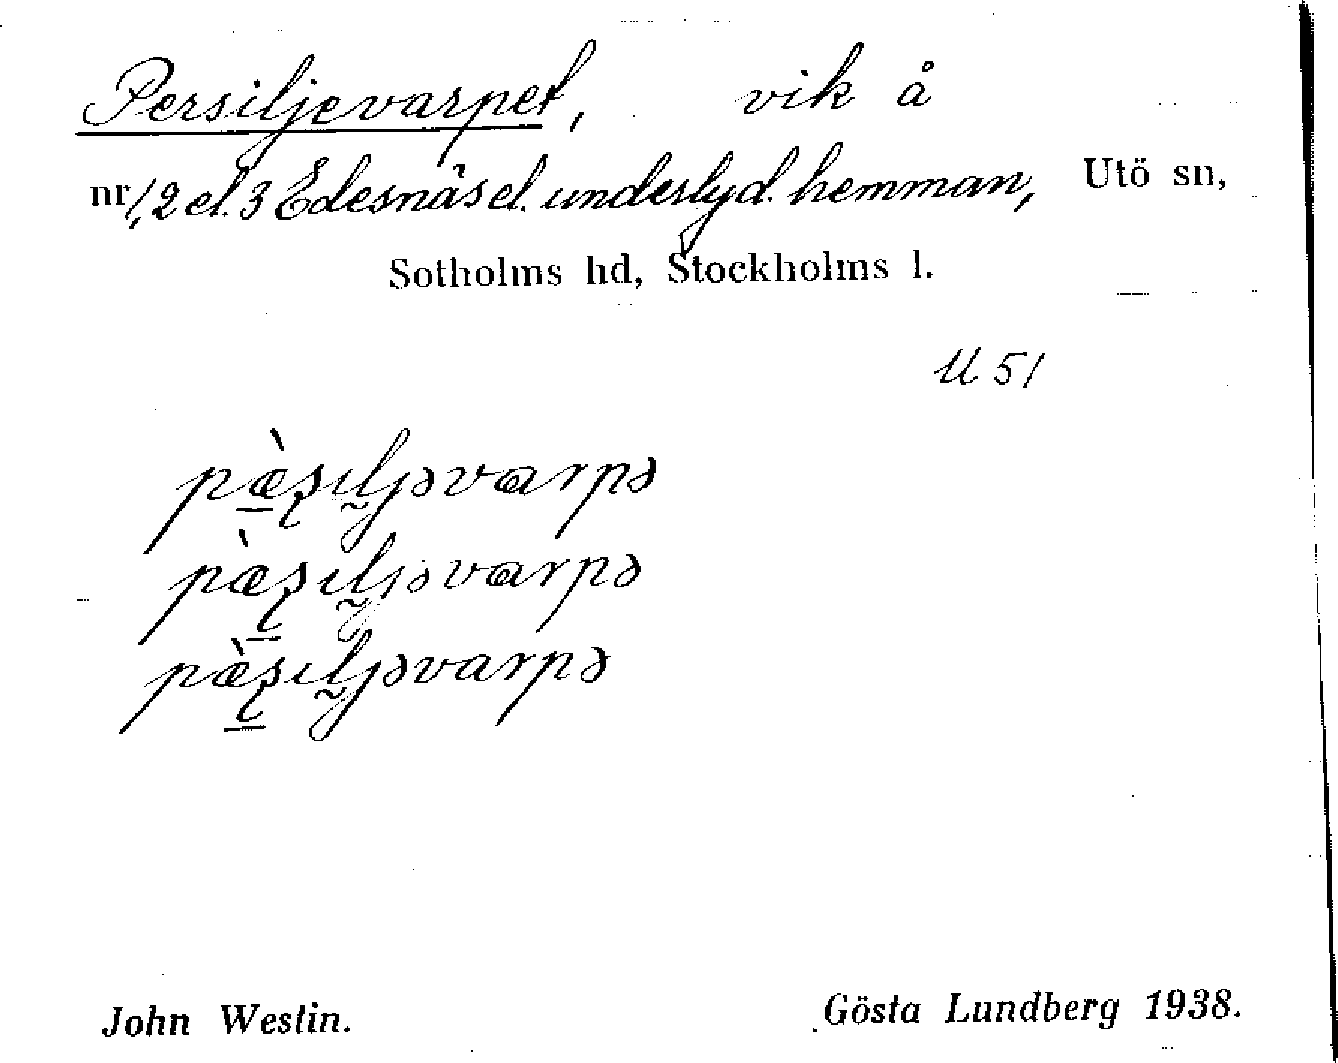 Persiljevarpet, vik å
nr 1, 2 el. 3 Edesnäs el. underlyd. hemman, Utö sn,
Sotholms hd, Stockholms l.
U 51
pæ̀ʂɪljəvarpə
pæ̀ʂɪljəvarpə
pæ̀ʂɪljəvarpə
John Westin. Gösta Lundberg 1938.